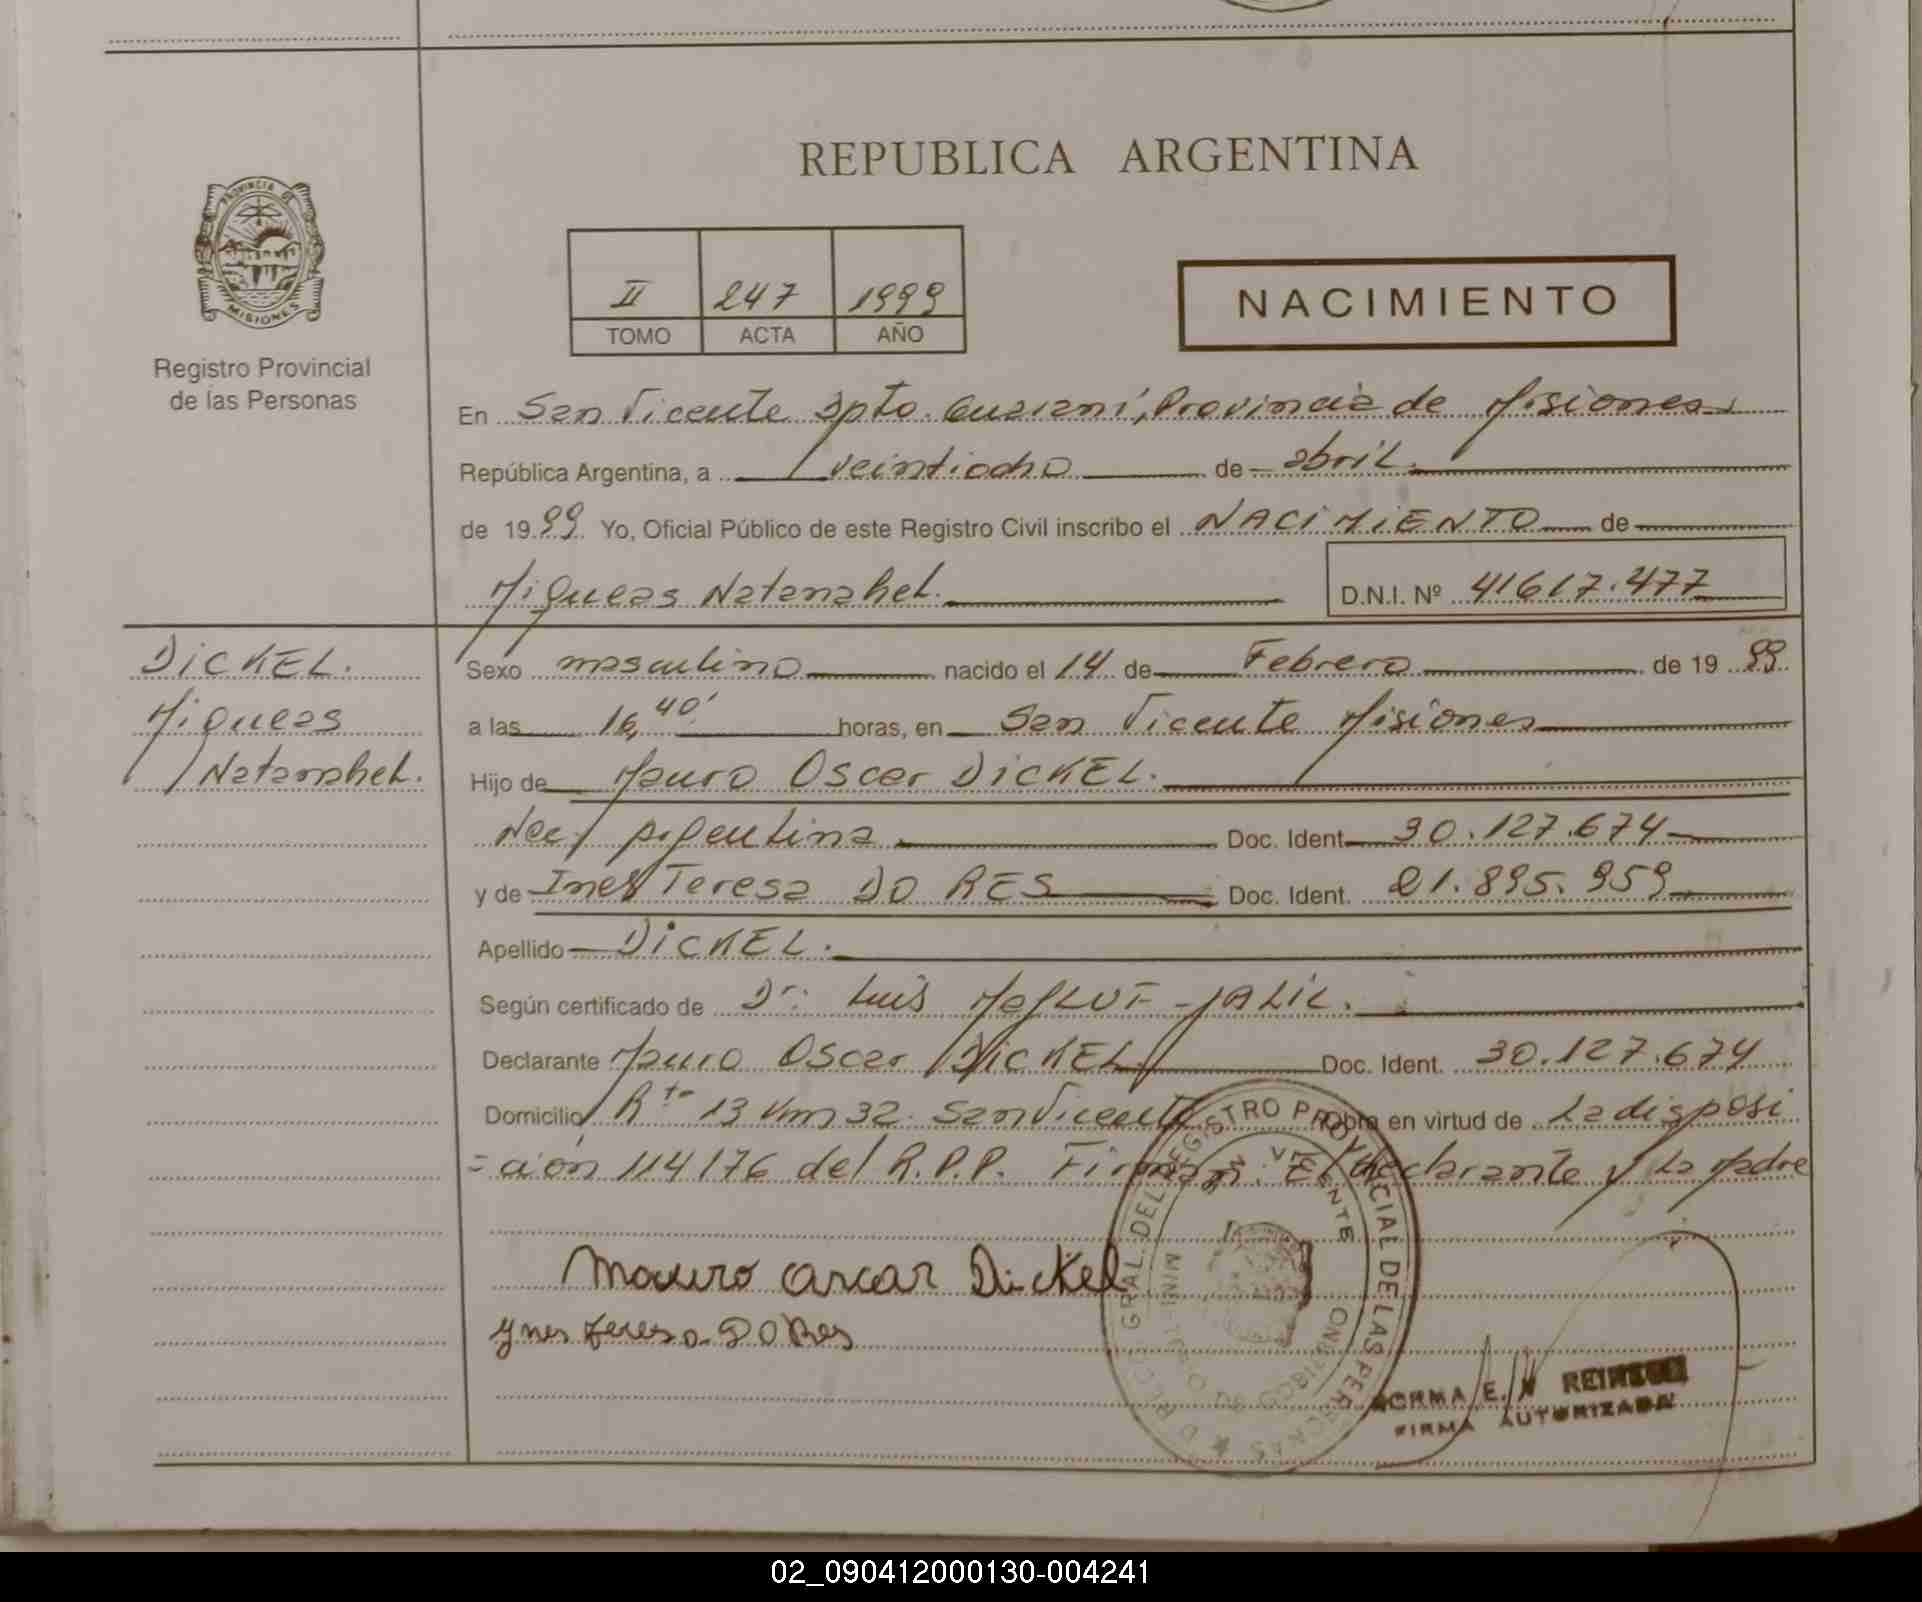 REPUBLICA ARGENTINA
PROVINCIA DE
MISIONES
Registro Provincial
de las Personas
II 247 1999
TOMO ACTA AÑO
NACIMIENTO
En San Vicente Dpto. Guaraní, Provincia de Misiones
República Argentina, a veintiocho de abril.
de 1999 Yo, Oficial Público de este Registro Civil inscribo el NACIMIENTO de
Miqueas Natanahel. D.N.I. Nº 41617.477
DICKEL.
Miqueas
Natanahel.
Sexo masculino nacido el 14 de Febrero de 19 99
a las 16,40' horas, en San Vicente Misiones
Hijo de Mauro Oscar DICKEL.
Nac. Argentina Doc. Ident. 30.127.674
y de Ines Teresa DO RES Doc. Ident. 21.895.959
Apellido DICKEL.
Según certificado de Dr. Luis MaFLUF - JALIL.
Declarante Mauro Oscar DICKEL Doc. Ident. 30.127.674
Domicilio Rta 13 Km 32. San Vicente Obra en virtud de La disposi
=ción 114176 del R.P.P. Firman. El declarante y La Madre
Mauro Oscar Dickel
Ynes Teresa DO Res
GRAL. DEL REGISTRO PROVINCIAL DE LAS PERSONAS
SAN VICENTE
NORMA E.
FIRMA AUTORIZADA
02_090412000130-004241